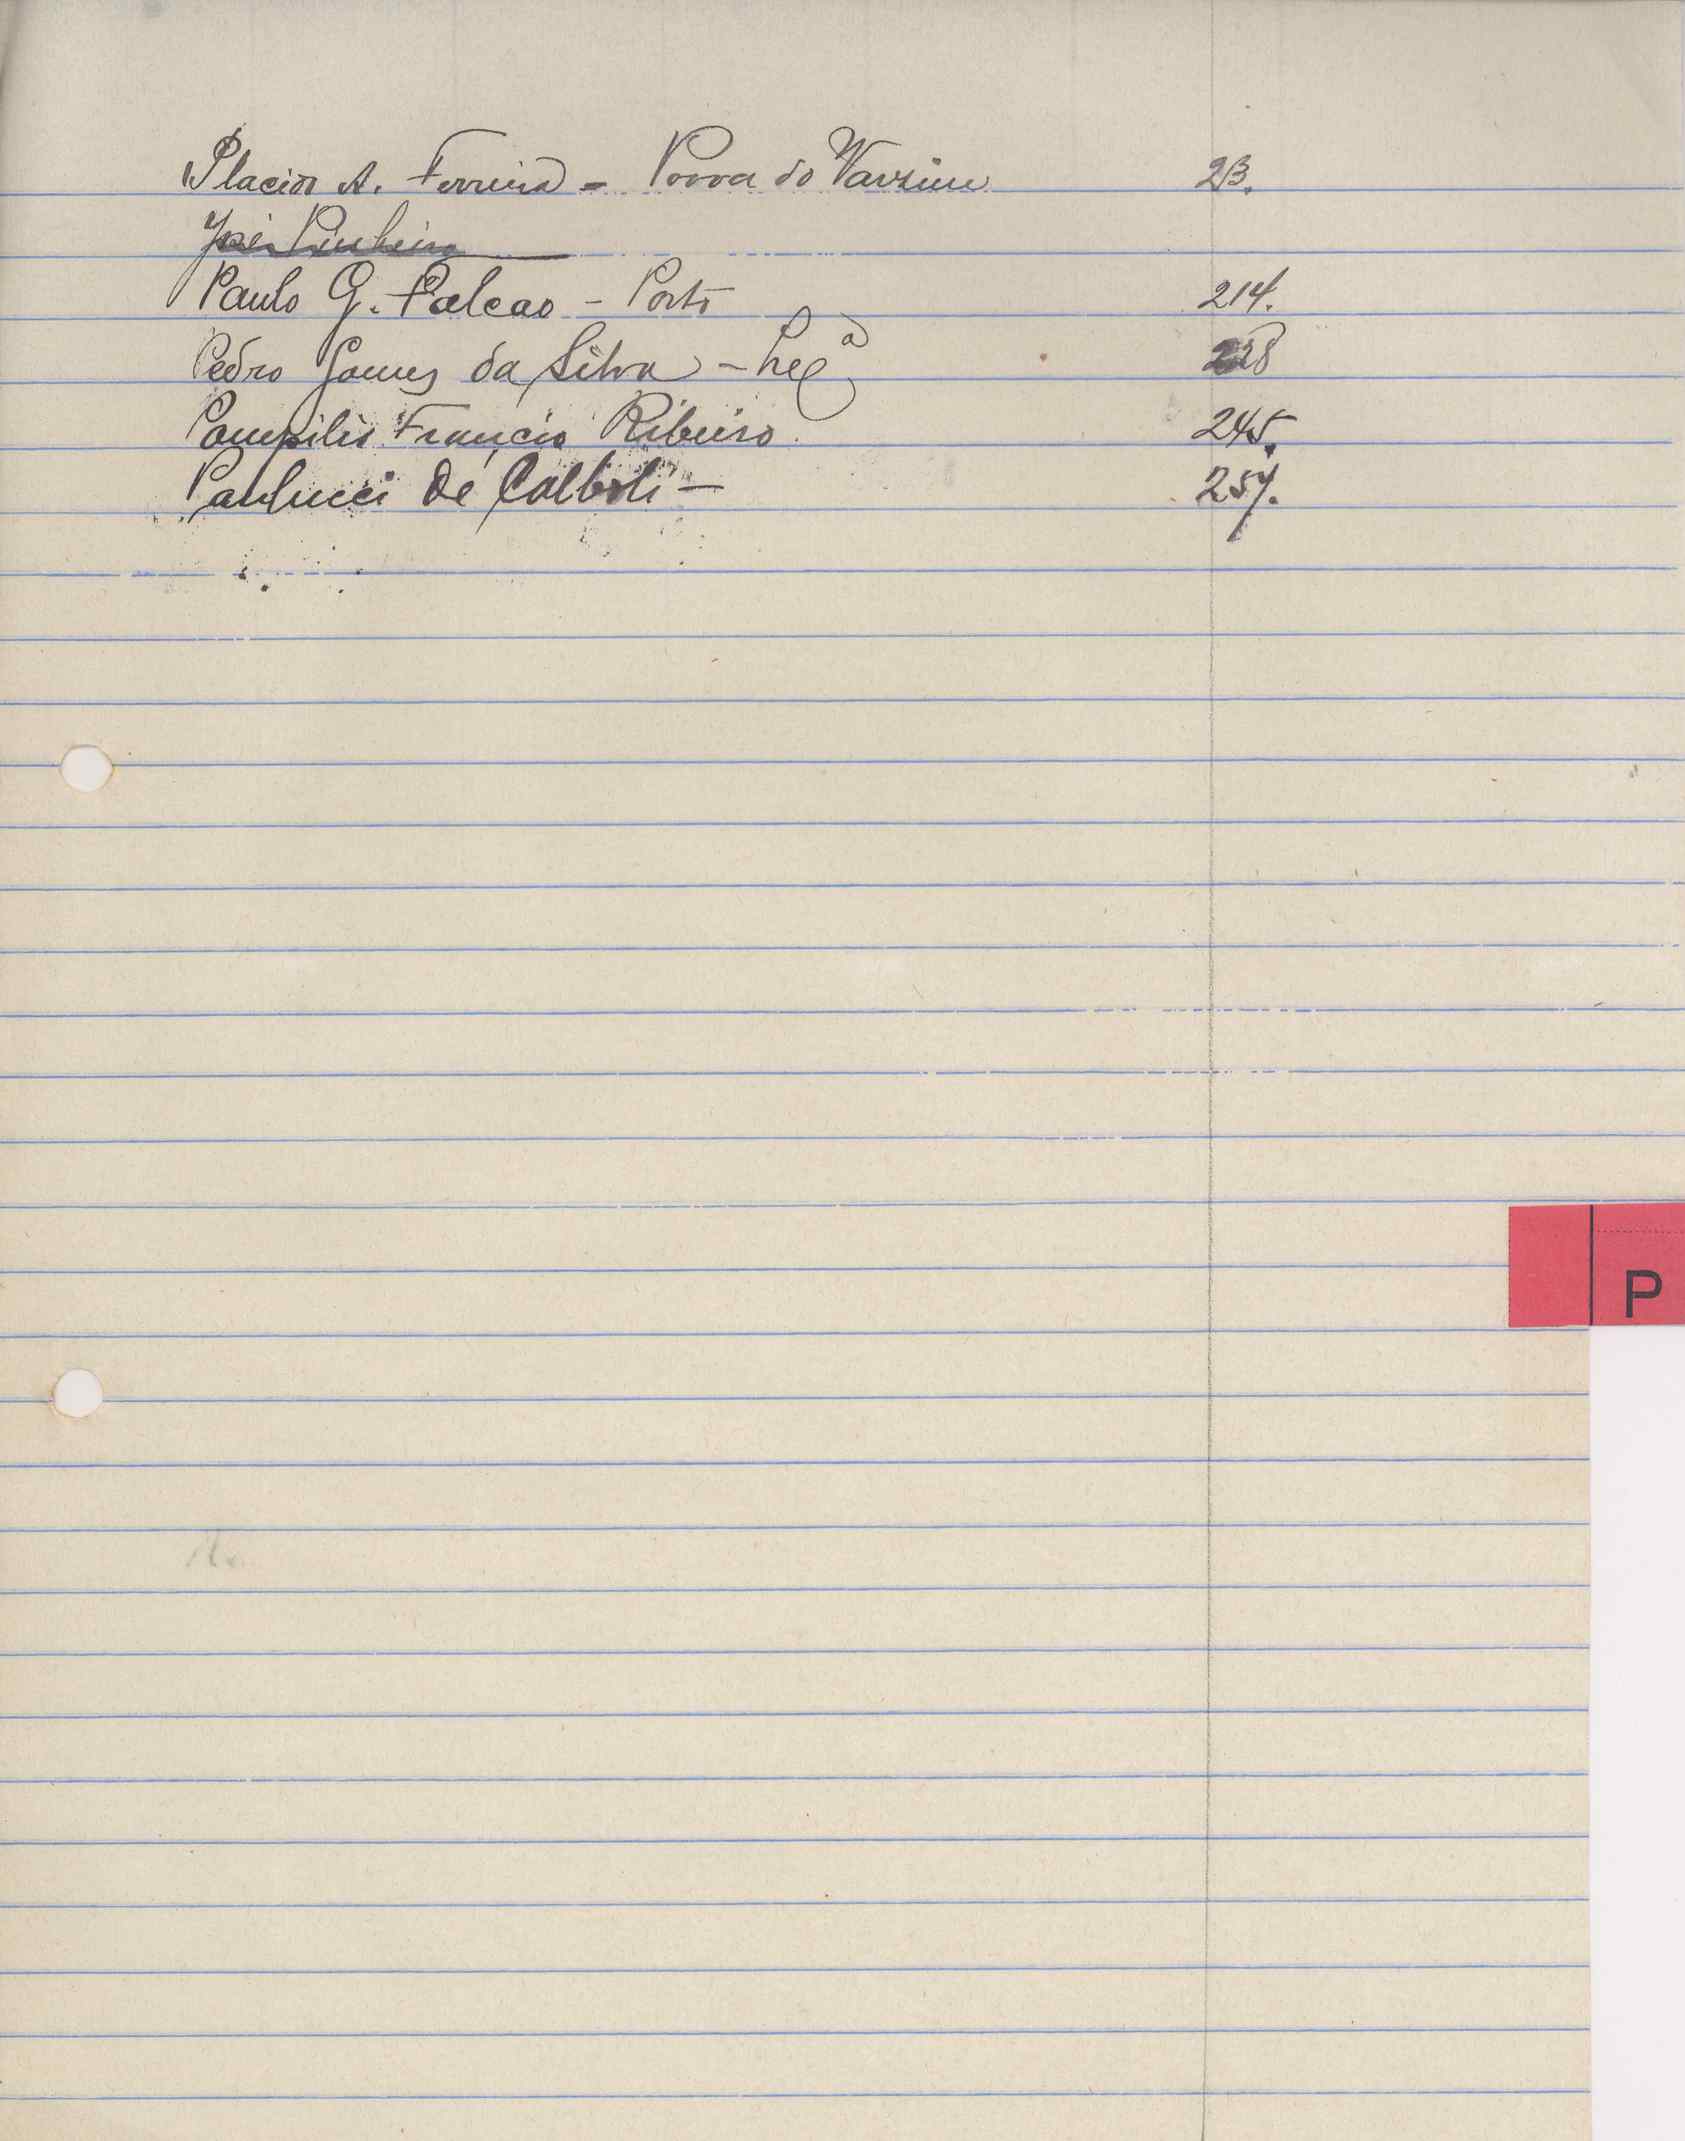 Placido A. Ferreira - Povoa do Varzim 23.
José Pinheiro
Paulo G. Falcao - Porto 214.
Pedro Gomes da Silva - 228
Pompilio Francio Ribeiro. 245.
Paulucci de Calboli - 257.
P